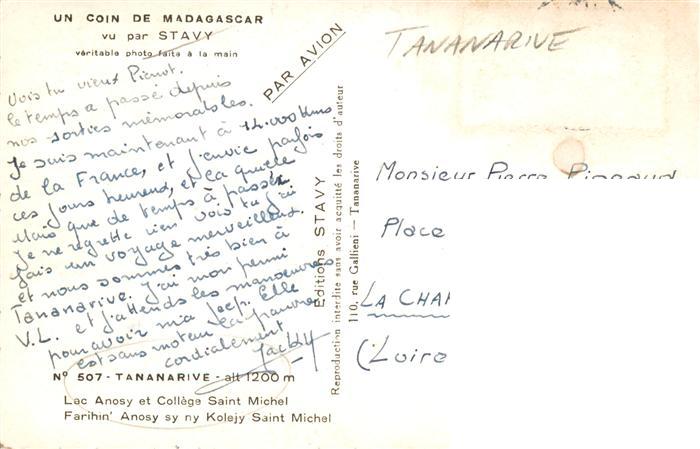 UN COIN DE MADAGASCAR
vu par STAVY
véritable photo faite à la main
PAR AVION
Vois tu vieux Pierrot.
le temps a passé depuis
nos sorties mémorables.
Je suis maintenant à 12.000 kms
de la France, et j'envie parfois
ces jours heureux, et la quille
Mais que de temps à passer
Je ne regrette rien vois tu j'ai
fais un voyage merveilleux.
et nous sommes très bien à
Tananarive. J'ai mon permi
V.L. et j'attends les manœuvres
pour avoir ma jeep. Elle
est sans moteur la pauvre
cordialement
Jacky
N° 507 - TANANARIVE - alt 1200 m
Lac Anosy et Collège Saint Michel
Farihin' Anosy sy ny Kolejy Saint Michel
Editions STAVY
Reproduction interdite sans avoir acquitté les droits d'auteur
110, rue Galliéni — Tananarive
TANANARIVE
Monsieur Pierre
Place
LA CHA
(Loire